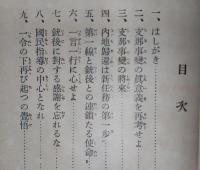 目次
一、はしがき
二、支那事變の眞意義を再考せよ
三、支那事變の將來
四、内地歸還は新任務の第一歩
五、第一線と銃後との連鎖たる使命
六、一言一行に心せよ
七、銃後に對する感謝を忘れるな
八、國民指導の中心となれ
九、一令の下再び起つの覺悟